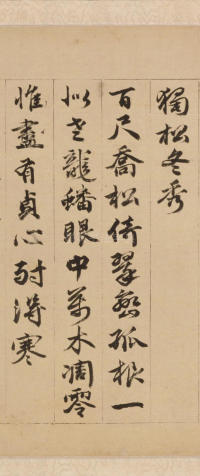 獨松冬秀
百尺喬松倚翠巒孤根一
似老龍蟠眼中萬木凋零
惟盡有貞心耐得寒